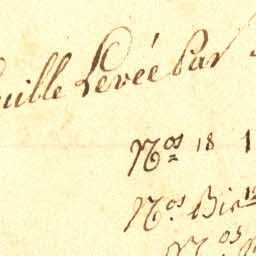 euille Levée Par
Nos 18 1
Nos. Bis
Nos